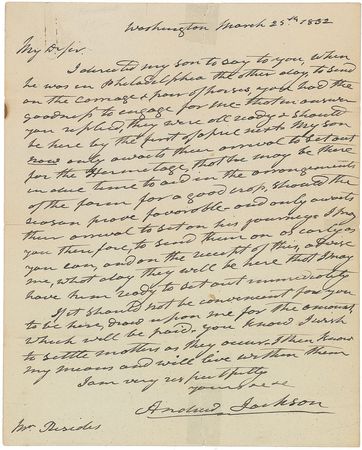 Washington March 25th 1832
My D. sir,
I directed my son to say to you, when
he was in Philadelphia the other day, to send
on the carriage & pair of horses, you had the
goodness to engage for me that in answer
you replied, they were all ready & should
be here by the first of april next. My son
now only awaits their arrival to set out
for the Hermitage, that he may be there
in due time to aid in the arrangements
of the farm for a good crop, should the
season prove favorable—and only awaits
their arrival to set on his journey. I pray
you therefore, to send them on as early as
you can, and on the receipt of this, advise
me, what day they will be here that I may
have him ready to set out immediately
If it should not be convenient for you
to be here, draw upon me for the amount
which will be paid. you know I wish
to settle matters as they occur. I then know
my means and will live within them
I am very respectfully
yours
Andrew Jackson
Mr.